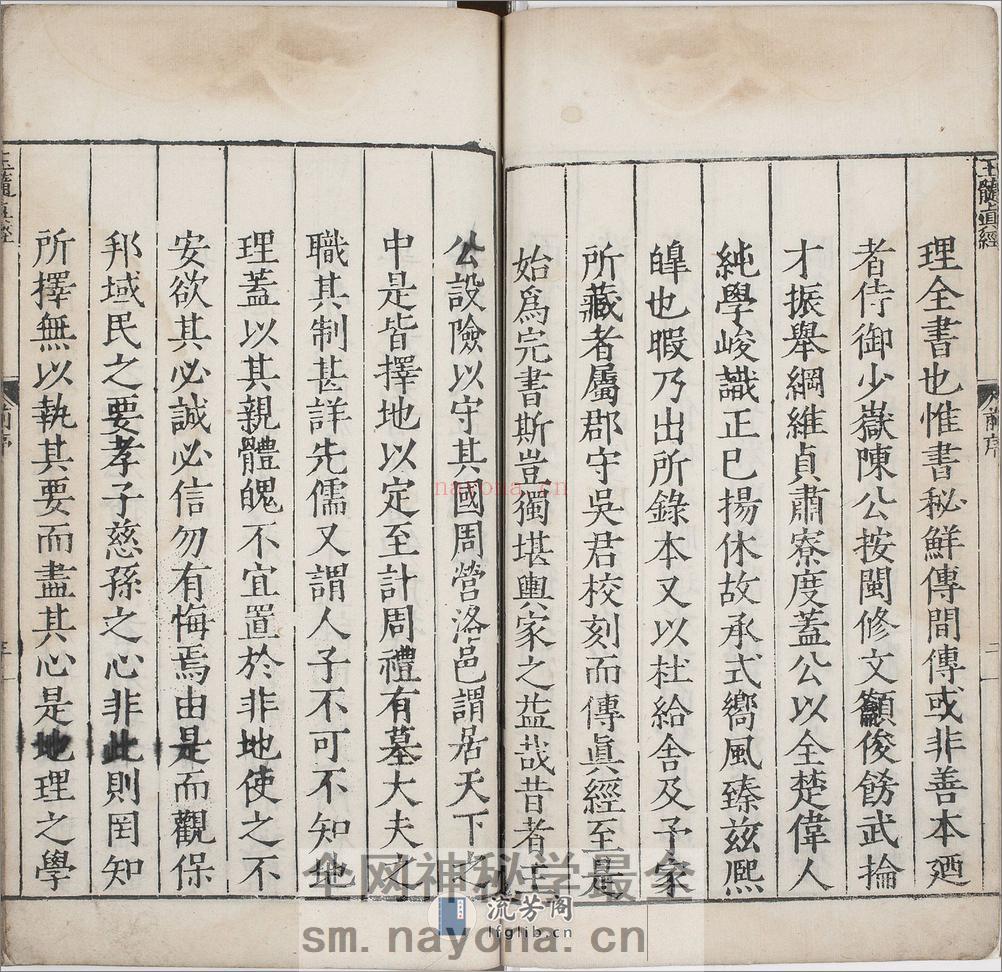 玉髓眞經
前序
二
理全書也惟書秘鮮傳間傳或非善本廼
者侍御少嶽陳公按閩修文籲俊飭武掄
才振舉綱維貞肅寮度蓋公以全楚偉人
純學峻識正巳揚休故承式嚮風臻兹熈
皥也暇乃出所錄本又以杜給舍及予家
所藏者屬郡守吳君校刻而傳眞經至是
始爲完書斯豈獨堪輿家之益哉昔者王
公設險以守其國周營洛邑謂居天下之
中是皆擇地以定至計周禮有墓大夫之
職其制甚詳先儒又謂人子不可不知地
理蓋以其親體魄不宜置於非地使之不
安欲其必誠必信勿有悔焉由是而觀保
邦域民之要孝子慈孫之心非此則罔知
所擇無以執其要而盡其心是地理之學
玉髓眞經
前序
nayona.cn
全网神秘学最全
流芳阁
lfglib.cn
sm.nayona.cn